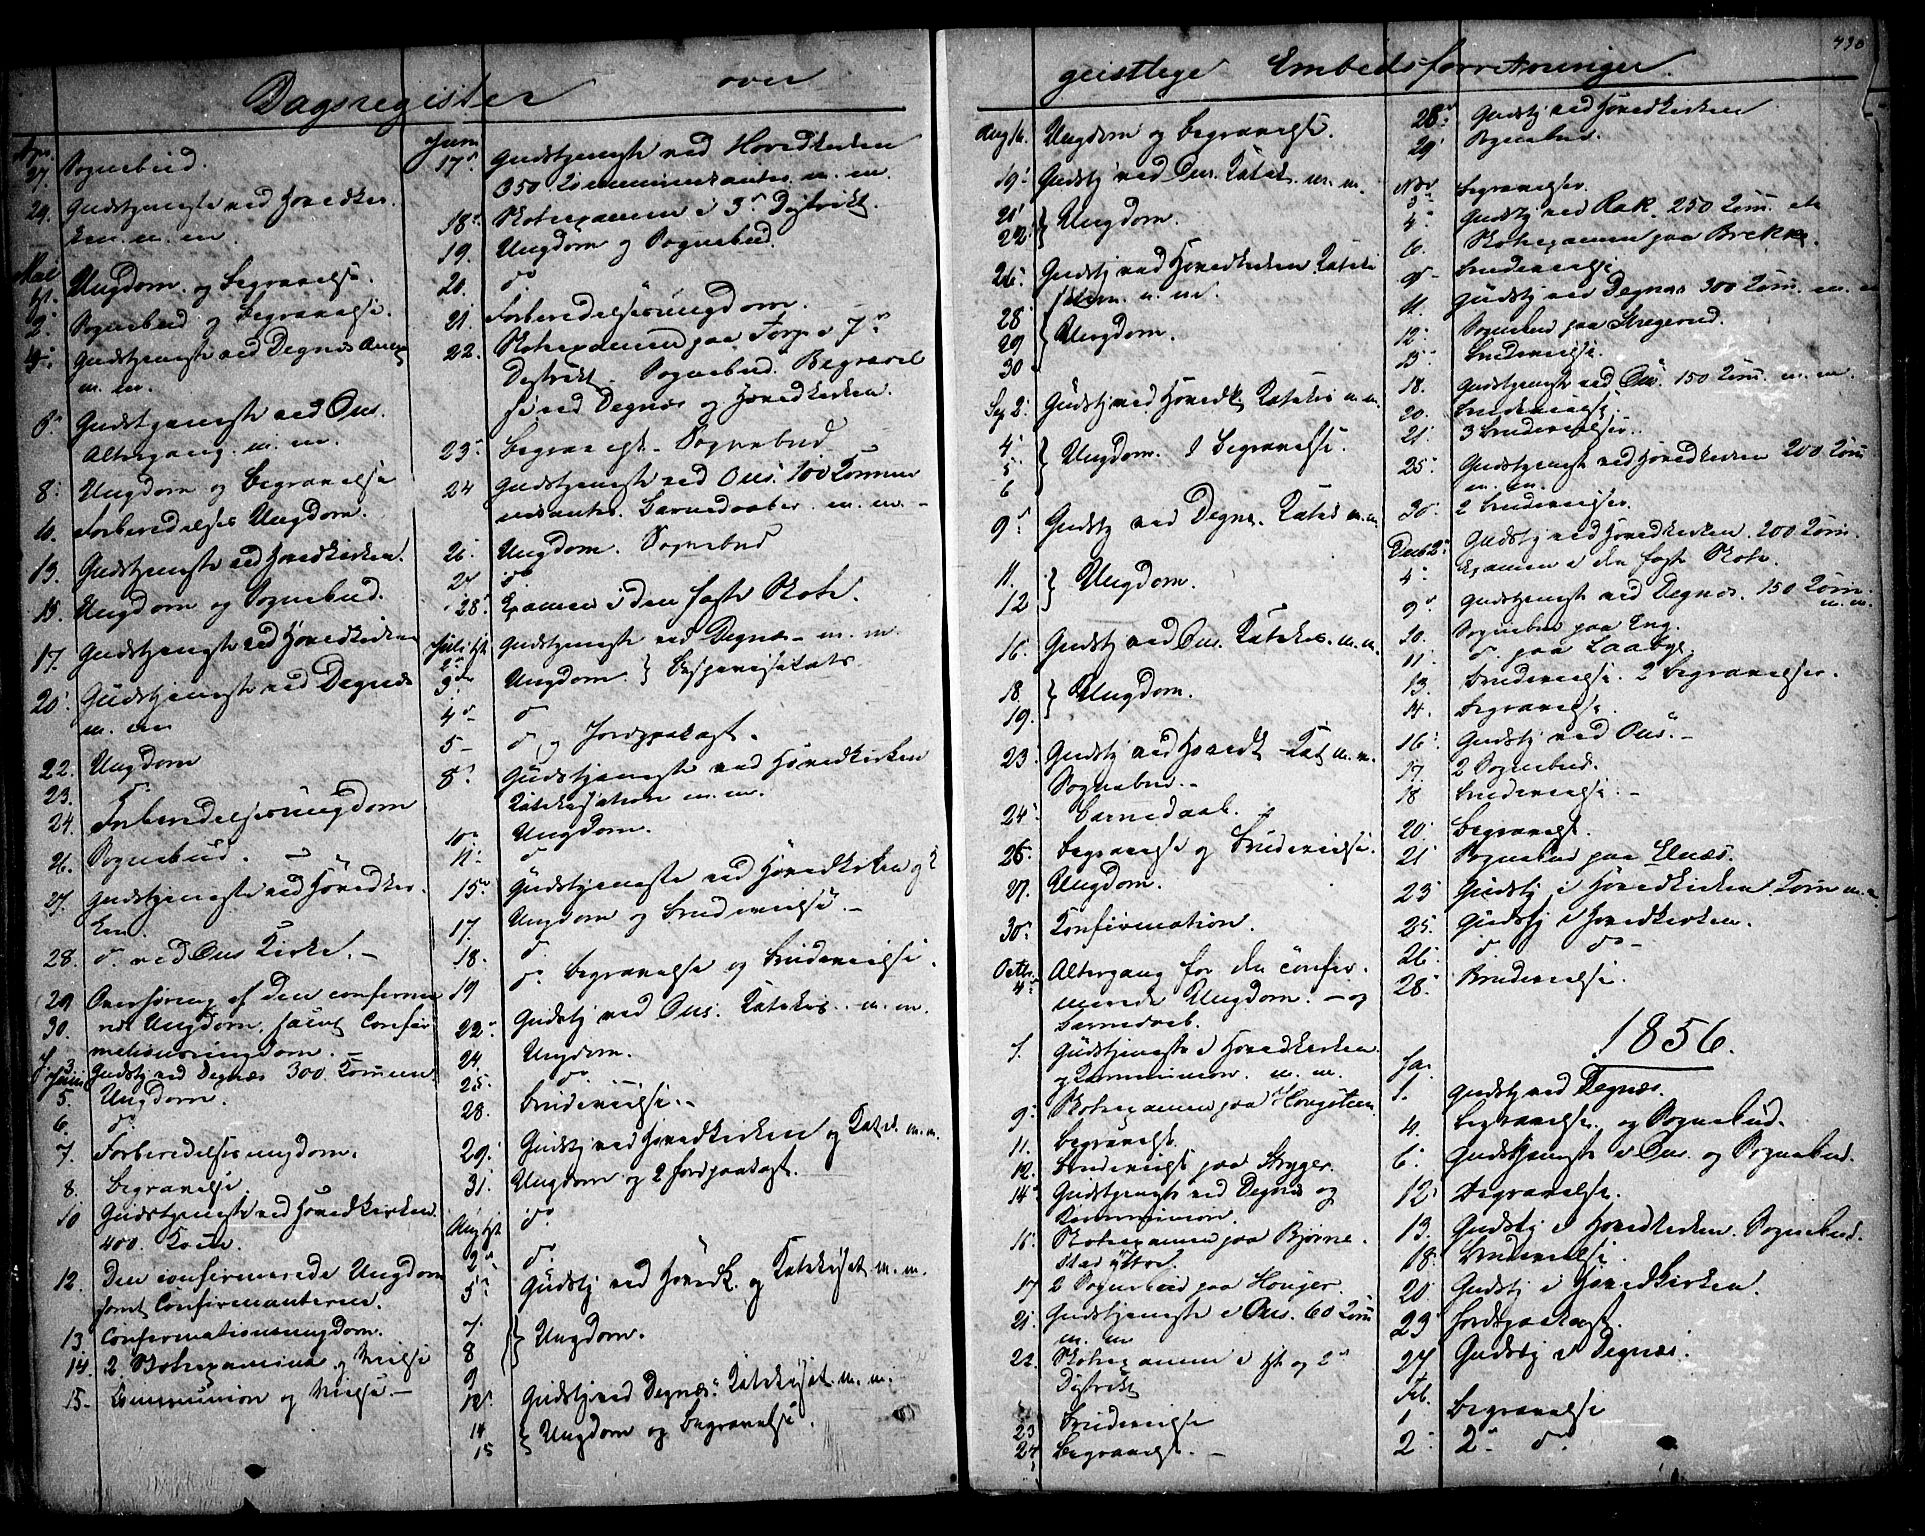 430
Dagsregister over geistlige Embedsforretninger
Apr.
27. Sognebud.
29. Gudstjeneste ved Hovedkir-
ken. m. m.
Mai
1st. Ungdom og Begravelse.
2. Sognebud og Begravelse.
4. Gudstjeneste ved Degnes
m. m.
6. Gudstjeneste ved Ous.
Altergang. m. m.
8. Ungdom og Begravelse
10. Forberedelses Ungdom.
13. Gudstjeneste ved Hovedkirken.
15. Ungdom og Sognebud.
17. Gudstjeneste ved Hovedkirken
20. Gudstjeneste ved Degnes
m. m.
22. Ungdom
23. do
24. Forberedelsesungdom
26. Sognebud.
27. Gudstjeneste ved Hovedkir-
ken.
28. do ved Ous Kirke. -
29 Overhøring af den confirme-
30. rede Ungdom, samt Confir-
mationsungdom. -
Juni 3. Gudstj ved Degnes 300 Commun
5. Ungdom.
6. do
7. Forberedelsesungdom.
8. Begravelse
10 Gudstjeneste ved Hovedkirken.
400. Kom.
12. Den confirmerede Ungdom
samt Confirmanterne.
13. Confirmationsungdom.
14. 2 Skoleexamina og Vielse
15. Communion og Vielse -
Juni
17. Gudstjeneste ved Hovedkirken
350 Communicanter m. m.
18. Skoleexamen i 5te Distrikt.
19. Ungdom og Sognebud.
20. do
21. Forberedelsesungdom.
22. Skoleexamen paa Torp i 7de
Distrikt. Sognebud. Begravel
se ved Degnes og Hovedkirken.
23. Begravelse - Sognebud
24 Gudstjeneste ved Ous. 100 Commu
nicanter. Barnedaaber. m. m. -
26. Ungdom. Sognebud
27 do
28. Examen i den faste Skole.
Juli 1st Gudstjeneste ved Degnes - m. m.
2den
3die Ungdom.
4de do
5 - do og Jordpaakast.
8. Gudstjeneste ved Hovedkirken
Katekisation m. m.
10. Ungdom.
11. do
15. Gudstjeneste ved Hovedkirken
17. Ungdom og Brudevielse. -
18. do
19 do Begravelse og Brudevielse.
22. Gudstj ved Ous. Katekis. m. m.
24. Ungdom.
25. do
28. Brudevielse. -
29. Gudstj ved Hovedkirken og Katek. m. m.
31. Ungdom og 2 Jordpaakast.
Aug 1st do
2. do
5. Gudstj ved Hovedk. og Katekisat. m. m.
7.
8 } Ungdom.
9
12. Gudstj ved Degnes. Katekisat. m. m.
14
15 } Ungdom og Begravelse.
Aug 16. Ungdom og Begravelse.
19. Gudstj ved Ous. Katek. m. m.
21
22. } Ungdom.
26. Gudstj ved Hovedkirken Kateki
sation. m. m.
28
29 } Ungdom.
30
Sep 2. Gudstj ved Hovedk Katekis m. m.
4
5 } Ungdom. 1 Begravelse.
6
9. Gudstj ved Degnes. Katekis m. m.
11.
12 } Ungdom.
16. Gudstj ved Ous. Katekes. m. m.
18.
19. } Ungdom.
23. Gudstj ved Hovedk - Kat m. m.
Sognebud. -
24. Barnedaab.
26. Begravelse og Brudevielse.
27. Ungdom.
30. Confirmation.
Octbr. 4. Altergang for de confir-
merede Ungdom. - og
Barnedaab.
7. Gudstjeneste i Hovedkirken.
og Communion. m. m.
9. Skoleexamen paa Haugsteen
11. Begravelse.
12. Brudevielse paa Stryger.
14. Gudstjeneste ved Degnes og
Communion.
16. Skoleexamen paa Bjørne-
stad yttre.
17 2 Sognebud paa Houger.
21. Gudstjeneste i Ous. 60 Comm
m. m
22. Skoleexamen i 1st og 2den
Distrikt
23 Brudevielse
24. Begravelse. -
28. Gudstj ved Hovedkirken
29. Sognebud.
Nov
3. Begravelser.
4. Gudstj ved Rak. 250 Com.
6. Skoleexamen paa Brekke.
9. Brudevielse
11. Gudstj ved Degnes 300 Com. m. m
12. Sognebud paa Skregerud.
15 Brudevielse.
18. Gudstjeneste ved Ous. 150 Com. m. m.
20. Brudevielse.
21. 3 Brudevielser.
25. Gudstjeneste ved Hovedkirken 200 Com
m. m.
30. 2 Brudevielser.
Decb 2. Gudstj ved Hovedkirken. 200 Com.
4. Examen i den faste Skole.
9. Gudstjeneste ved Degnes. 150 Com.
m. m.
10. Sognebud paa Eng.
11. do paa Laaby.
13. Brudevielse. 2 Begravelser.
14. Begravelse.
16. Gudstj ved Ous. -
17. 2 Sognebud.
18 Brudevielse. -
20. Begravelse.
21 Sognebud paa Elnæs.
23 Gudstj i Hovedkirken. Com m. m.
25. Gudstj i Hovedkirken.
26. do do -
28. Brudevielse.
1856.
Jan.
1. Gudstj ved Degnes.
4. Begravelse og Sognebud.
6. Gudstjeneste i Ous. og Sognebud.
12. Begravelse.
13. Gudstj i Hovedkirken. Sognebud.
18. Brudevielse.
20 Gudstj i Hovedkirken.
23 Jordpaakast.
27 Gudstj i Degnes.
Feb.
1 Begravelse
2. 2 - do